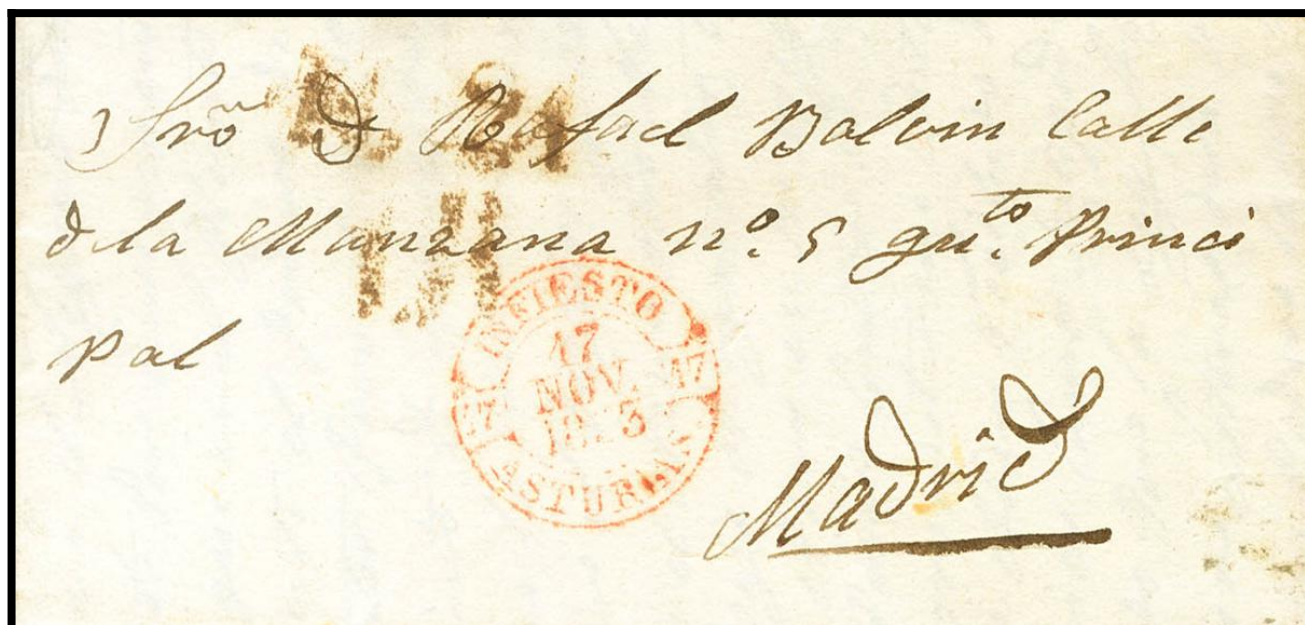 Srõ D Rafael Balvin Calle
d la Manzana nº. 5 gu.to Princi
pal
INFIESTO
47 47
17
NOV.
ASTURIAS
Madrid